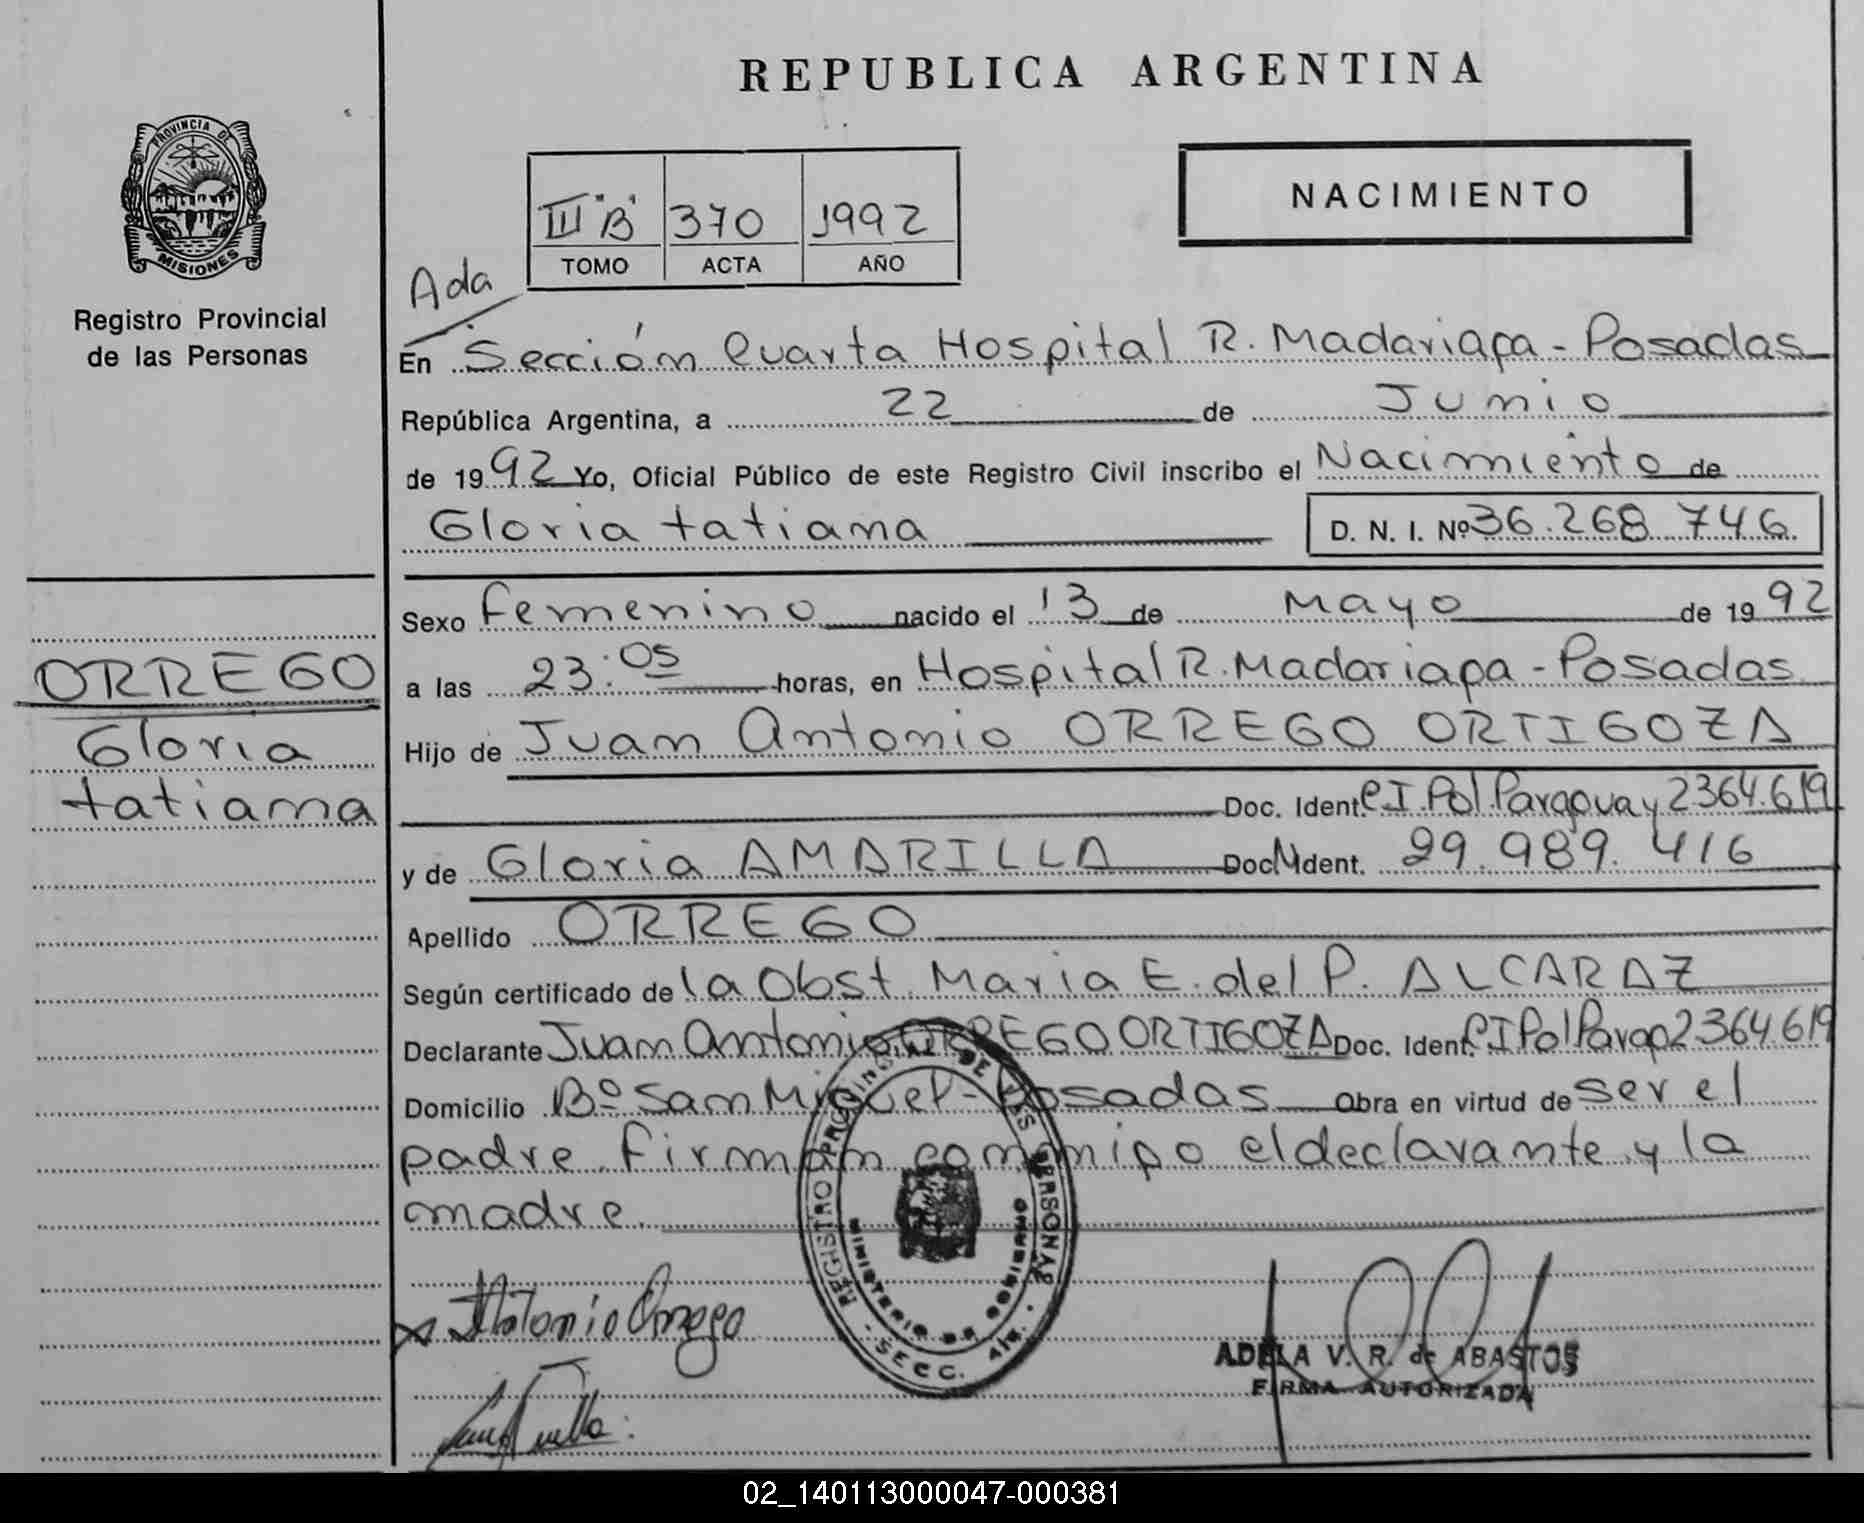 REPUBLICA ARGENTINA
PROVINCIA DE
MISIONES
Registro Provincial
de las Personas
NACIMIENTO
III "B" 370 1992
TOMO ACTA AÑO
Ada
En Sección Cuarta Hospital R. Madariaga - Posadas
República Argentina, a 22 de Junio
de 1992 Yo, Oficial Público de este Registro Civil inscribo el Nacimiento de
Gloria tatiana D. N. I. Nº 36.268.746.
Sexo femenino nacido el 13 de Mayo de 1992
a las 23:05 horas, en Hospital R. Madariaga - Posadas
Hijo de Juan Antonio ORREGO ORTIGOZA
Doc. Ident. C.I. Pol. Paraguay 2364.619
y de Gloria AMARILLA Doc. Ident. 29.989.416
Apellido ORREGO
Según certificado de la Obst. Maria E. del P. ALCARAZ
Declarante Juan Antonio ORREGO ORTIGOZA Doc. Ident. C I Pol Parag 2364.619
Domicilio Bº San Miguel - Posadas Obra en virtud de ser el
padre. firman conmigo el declarante y la
madre.
ORREGO
Gloria
tatiana
REGISTRO PROVINCIAL DE LAS PERSONAS
MINISTERIO DE GOBIERNO
SECC. 4ta.
Antonio Orrego
ADELA V. R. de ABASTOS
FIRMA AUTORIZADA
02_140113000047-000381